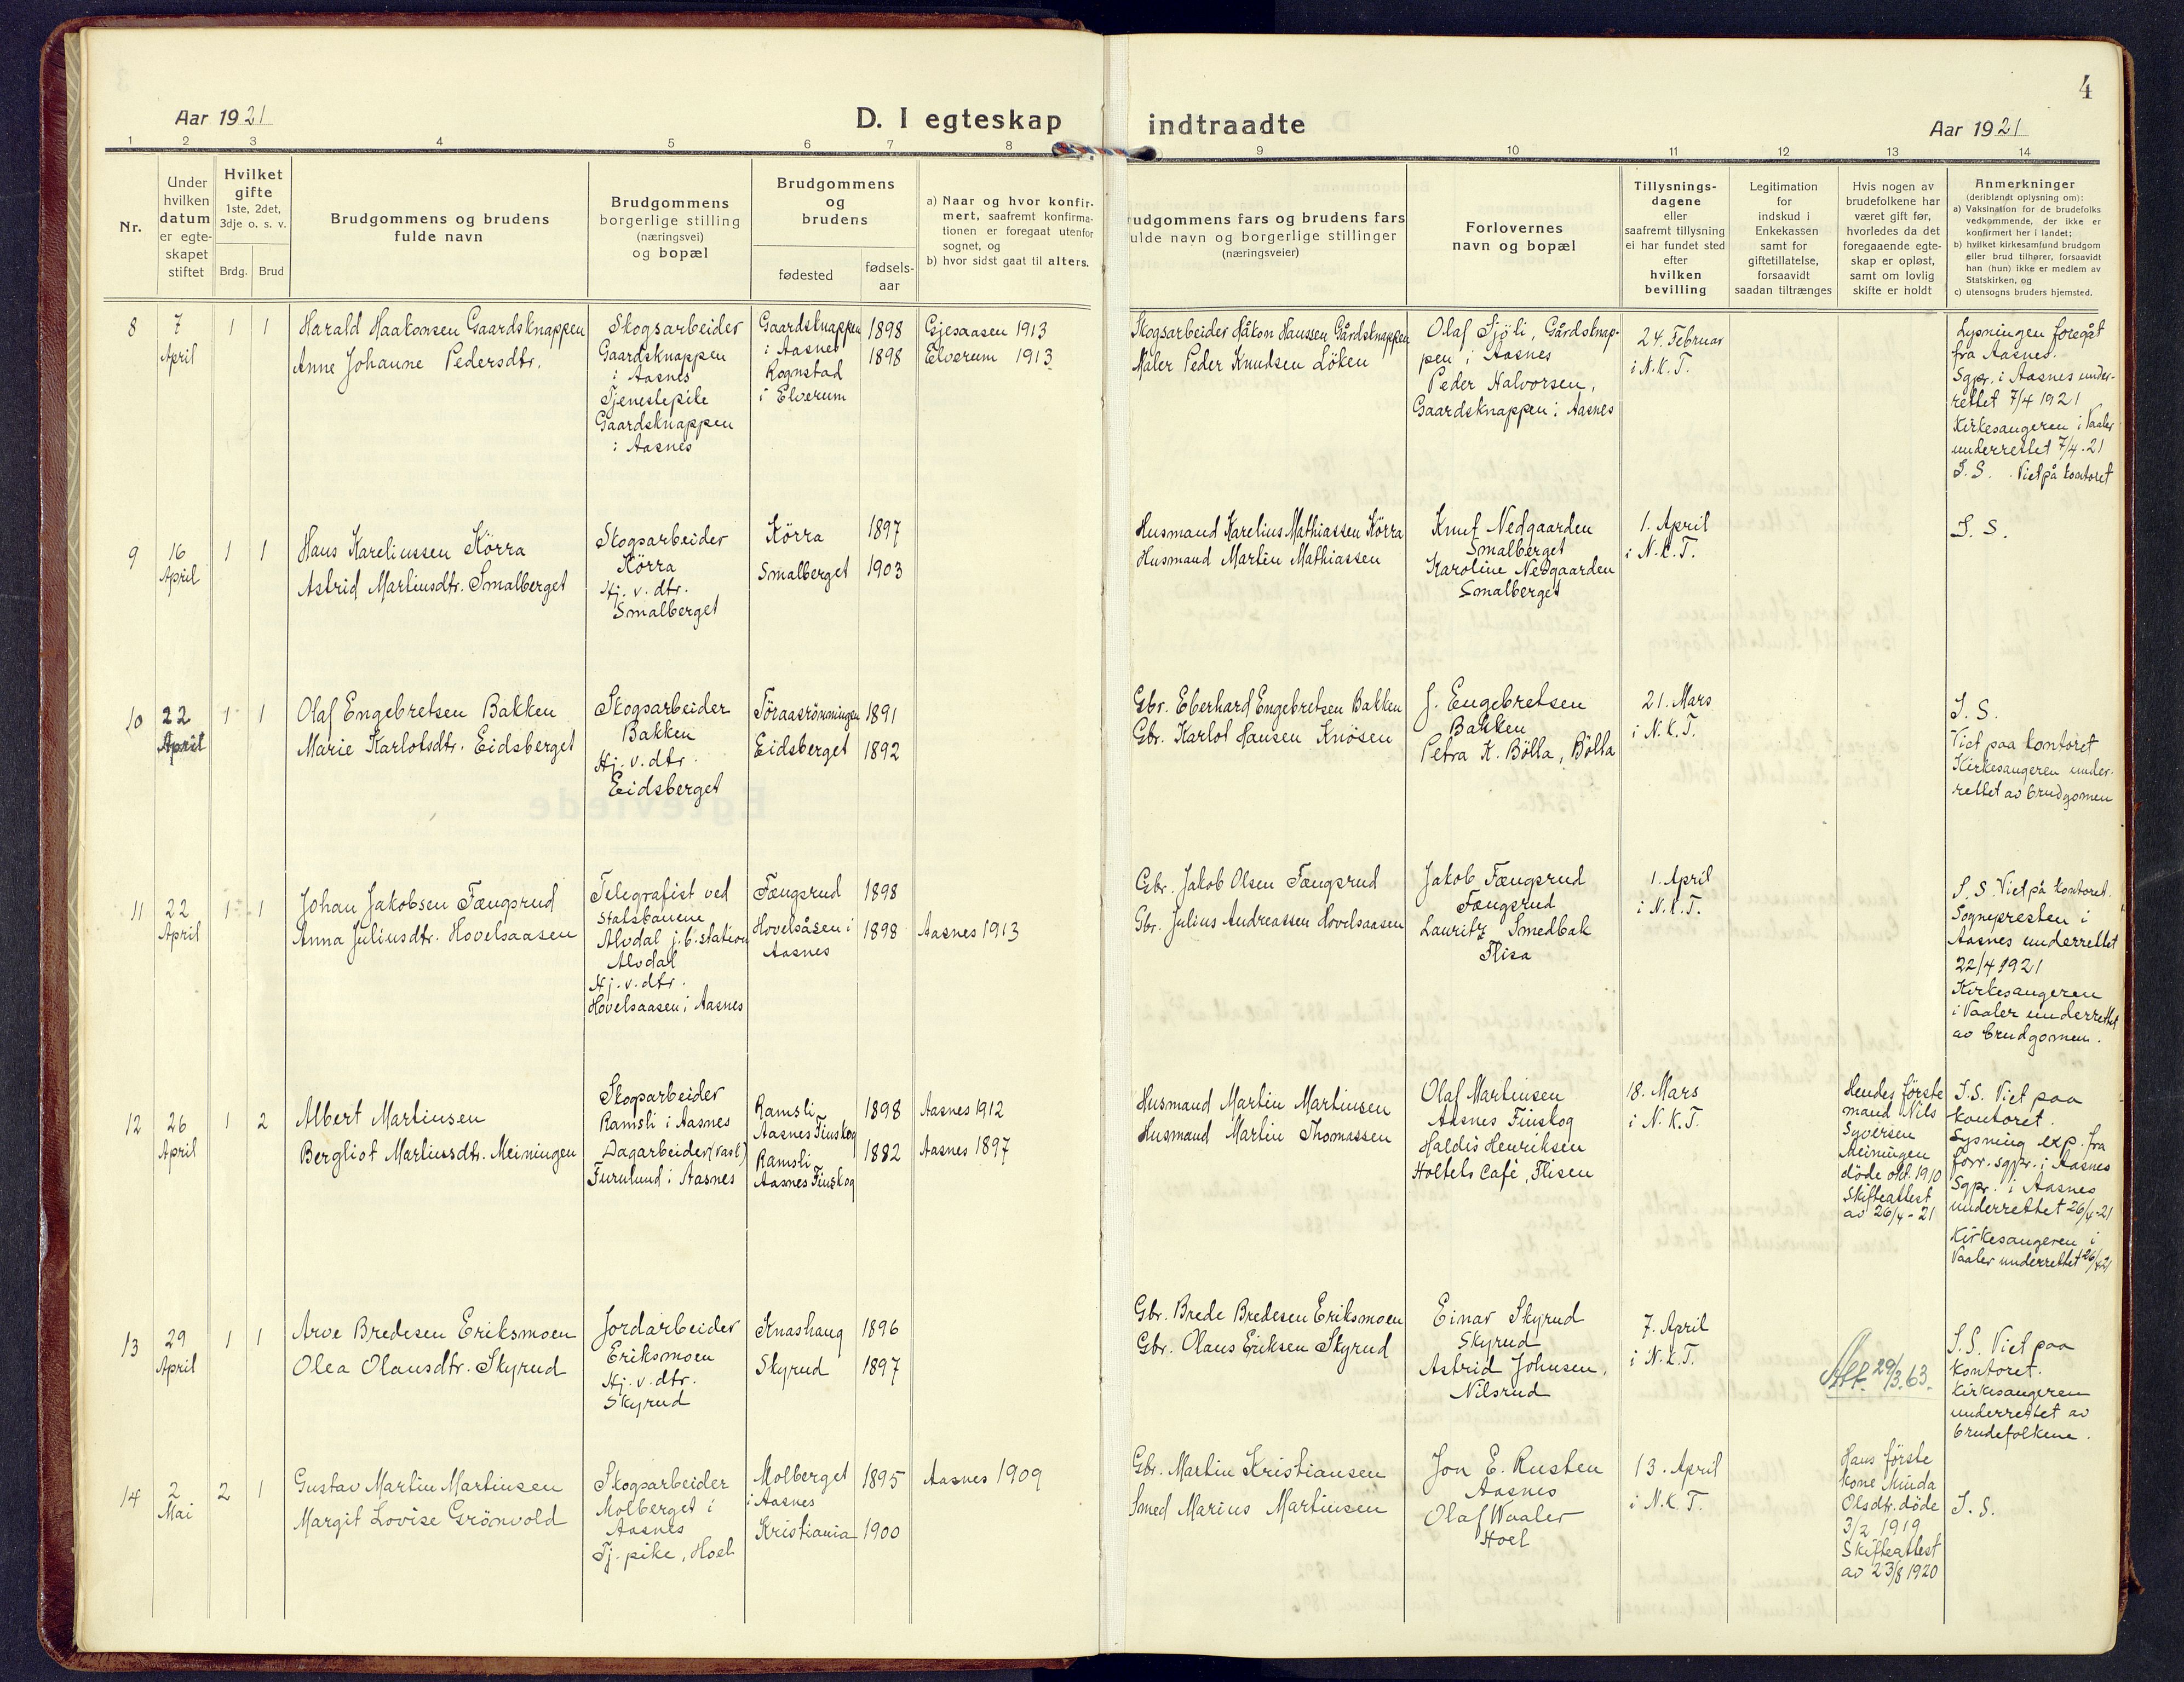 4
Aar 1921
D. I egteskap
indtraadte
Aar 1921
1
2
3
4
5
6
7
8
9
10
11
12
13
14
Nr.
Under
hvilken
datum
er egte-
skapet
stiftet
Hvilket
gifte
1ste, 2det,
3dje o. s. v.
Brdg.
Brud
Brudgommens og brudens
fulde navn
Brudgommens
borgerlige stilling
(næringsvei)
og bopæl
Brudgommens
og
brudens
fødested
fødsels-
aar
a) Naar og hvor konfir-
mert, saafremt konfirma-
tionen er foregaat utenfor
sognet, og
b) hvor sidst gaat til alters.
udgommens fars og brudens fars
ulde navn og borgerlige stillinger
(næringsveier)
Forlovernes
navn og bopæl
Tillysnings-
dagene
eller
saafremt tillysning
ei har fundet sted
efter
hvilken
bevilling
Legitimation
for
indskud i
Enkekassen
samt for
giftetillatelse,
forsaavidt
saadan tiltrænges
Hvis nogen av
brudefolkene har
været gift før,
hvorledes da det
foregaaende egte-
skap er opløst,
samt om lovlig
skifte er holdt
Anmerkninger
(deriblandt oplysning om):
a) Vaksination for de brudefolks
vedkommende, der ikke er
konfirmert her i landet;
b) hvilket kirkesamfund brudgom
eller brud tilhører, forsaavidt
han (hun) ikke er medlem av
Statskirken, og
c) utensogns bruders hjemsted.
8
7
April
1
1
Harald Haakonsen Gaardsknappen
Anne Johanne Pedersdtr.
Skogsarbeider
Gaardsknappen
i Aasnes
Tjenestepike
Gaardsknappen
i Aasnes
Gaardsknappen
i Aasnes
Kognstad
i Elverum
1898
1898
Gjesaasen 1913
Elverum 1913
Skogsarbeider Håkon Hanssen Gårdsknappen
Maler Peder Knudsen Löken
Olaf Sjöli, Gårdsknap-
pen i Aasnes
Peder Halvorsen,
Gaardsknappen i Aasnes
24. Februar
i N.K.T.
Lysningen foregåt
fra Aasnes.
Sgpr. i Aasnes under-
rettet 7/4 1921
Kirkesangeren i Vaaler
underrettet 7/4-21
S. S. Viet på kontoret
9
16
April
1
1
Hans Kareliussen Körra
Astrid Martinsdtr. Smalberget
Skogsarbeider
Körra
Hj. v. dtr.
Smalberget
Körra
Smalberget
1897
1903
Husmand Karelius Mathiassen Körra
Husmand Martin Mathiassen
Knut Nedgaarden
Smalberget
Karoline Nedgaarden
Smalberget
1. April
i N.K.T.
S. S.
10
22
April
1
1
Olaf Engebretsen Bakken
Marie Karlotsdtr. Eidsberget
Skogsarbeider
Bakken
Hj. v. dtr.
Eidsberget
Töraasrömningen
Eidsberget
1891
1892
Gbr. Eberhard Engebretsen Bakken
Gbr. Karlot Hansen Knösen
J. Engebretsen
Bakken
Petra K. Bölla, Bölla
21. Mars
i N.K.T.
S. S.
Viet paa kontoret
Kirkesangeren under-
rettet av brudgomen
11
22
April
1
1
Johan Jakobsen Fængsrud
Anna Juliusdtr. Hovelsaasen
Telegrafist ved
statsbanene
Alvdal j.b.station
Alvdal
Hj. v. dtr.
Hovelsaasen i Aasnes
Fængsrud
Hovelsåsen i
Aasnes
1898
1898
Aasnes 1913
Gbr. Jakob Olsen Fængsrud
Gbr. Julius Andreassen Hovelsaasen
Jakob Fængsrud
Fængsrud
Lauritz Smedbak
Flisa
1. April
i N.K.T.
S. S. Viet på kontoret.
Sognepresten i
Aasnes underrettet
22/4 1921
Kirkesangeren
i Vaaler underrettet
av brudgomen.
12
26
April
1
2
Albert Martinsen
Bergliot Martinsdtr. Meiningen
Skogsarbeider
Ramsli i Aasnes
Dagarbeider (vask)
Furulund i Aasnes
Ramsli
Aasnes Finskog
Ramsli
Aasnes Finskog
1898
1882
Aasnes 1912
Aasnes 1897
Husmand Martin Martinsen
Husmand Martin Thomassen
Olaf Martinsen
Aasnes Finskog
Haldis Henriksen
Holtets Café, Flisen
18. Mars
i N.K.T.
Hendes första
mand Nils
Syversen
Meiningen
döde okt. 1910
Skifteattest
av 26/4-21
S.S. Viet paa
kontoret.
Lysning exp. fra
forr. sgpr. i Aasnes
Sgpr. i Aasnes
underrettet 26/4-21
Kirkesangeren i
Vaaler underrettet 26/4 21
13
29
April
1
1
Arve Bredesen Eriksmoen
Olea Olausdtr. Skyrud
Jordarbeider
Eriksmoen
Hj. v. dtr.
Skyrud
Knashaug
Skyrud
1896
1897
Gbr. Brede Bredesen Eriksmoen
Gbr. Olaus Eriksen Skyrud
Einar Skyrud
Skyrud
Astrid Johnsen,
Nilsrud
7. April
i N.K.T.
Att. 29/3.63.
S.S. Viet paa
kontoret.
Kirkesangeren
underrettet av
brudefolkene.
14
2
Mai
2
1
Gustav Martin Martinsen
Margit Lovise Grönvold
Skogsarbeider
Molberget i
Aasnes
Tj. pike, Hoel
Molberget
i Aasnes
Kristiania
1895
1900
Aasnes 1909
Gbr. Martin Kristiansen
Smed Marius Martinsen
Jon E. Rusten
Aasnes
Olaf Waaler
Hoel
13. April
i N.K.T.
Hans förste
kone Minda
Olsdtr. döde
3/2 1919
Skifteattest
av 23/8 1920
S. S.